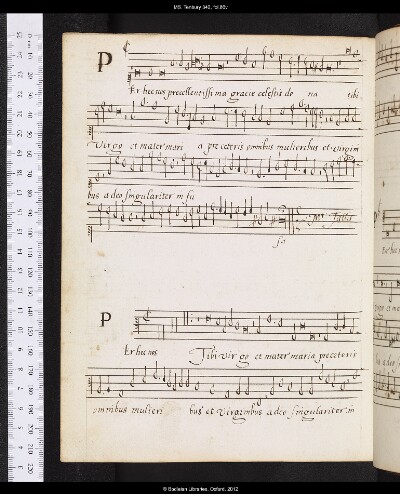 MS. Tenbury 342, fol.86v
P
Er hec nos precellentissima gracie celestis do na tibi
Virgo et mater mari a pre ceteris omnibus mulieribus et virgini
bus a deo singulariter in fu
Mr. Tallis
sa
P
Er hec nos Tibi virgo et mater maria pre ceteris
omnibus mulieri bus et virginibus a deo singulariter in
© Bodleian Libraries, Oxford, 2012